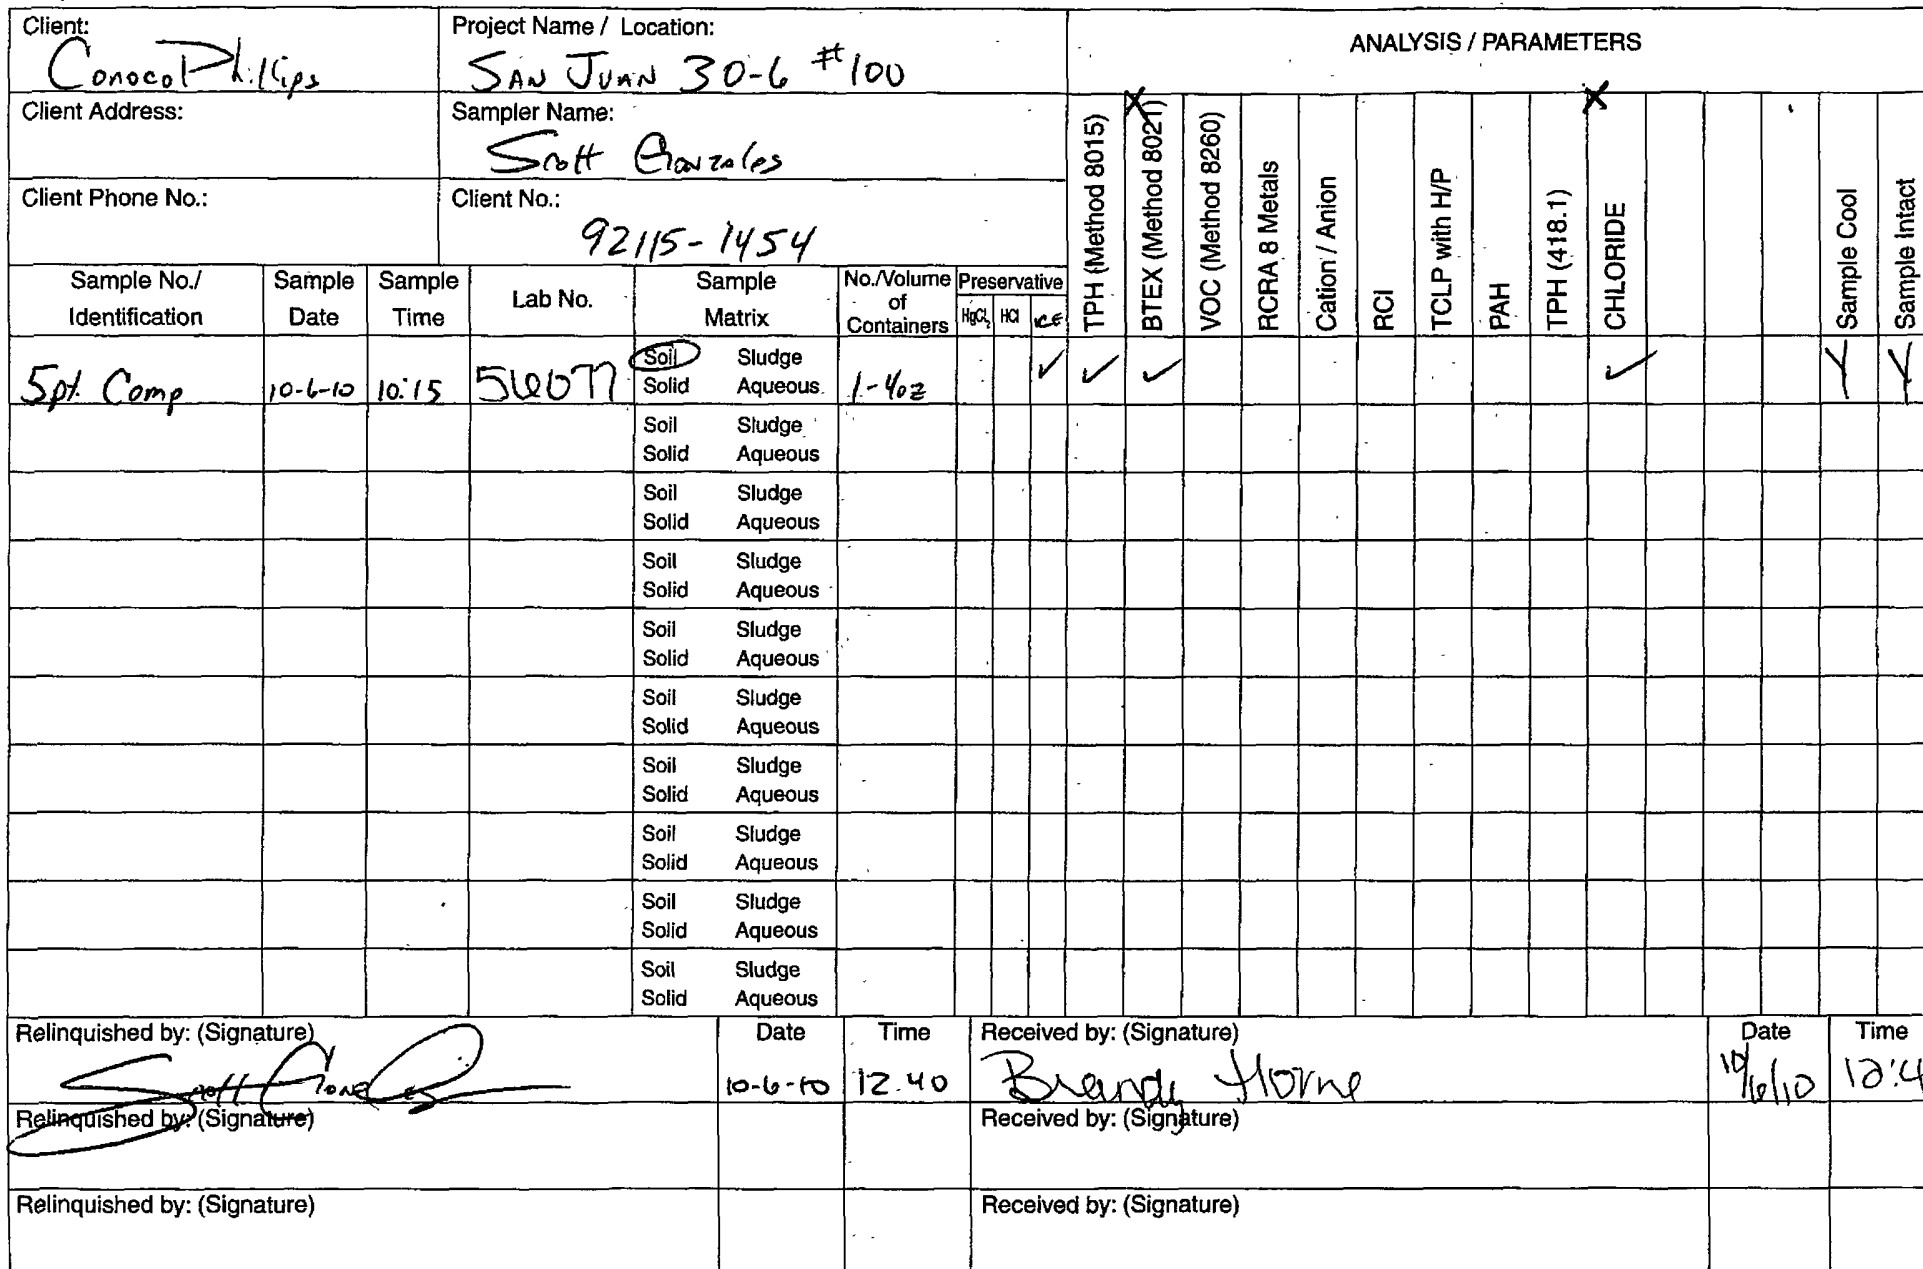 Client:
ConocoPhillips
Project Name / Location:
SAN JUAN 30-6 #100
ANALYSIS / PARAMETERS
Client Address:
Sampler Name:
Scott Gonzales
Client Phone No.:
Client No.:
92115-1454
Sample No./ Identification
Sample Date
Sample Time
Lab No.
Sample Matrix
No./Volume of Containers
Preservative
HgCl2 HCl ICE
TPH (Method 8015)
BTEX (Method 8021)
VOC (Method 8260)
RCRA 8 Metals
Cation / Anion
RCI
TCLP with H/P
PAH
TPH (418.1)
CHLORIDE
Sample Cool
Sample Intact
X X
5pt. Comp 10-6-10 10:15 56077 1-4oz ✓ ✓ ✓ ✓ Y Y
Soil Sludge
Solid Aqueous
Soil Sludge
Solid Aqueous
Soil Sludge
Solid Aqueous
Soil Sludge
Solid Aqueous
Soil Sludge
Solid Aqueous
Soil Sludge
Solid Aqueous
Soil Sludge
Solid Aqueous
Soil Sludge
Solid Aqueous
Soil Sludge
Solid Aqueous
Soil Sludge
Solid Aqueous
Relinquished by: (Signature)
Scott Gonzales
Date
10-6-10
Time
12:40
Received by: (Signature)
Brandy Horne
Date
10/6/10
Time
12:4
Relinquished by: (Signature)
Received by: (Signature)
Relinquished by: (Signature)
Received by: (Signature)